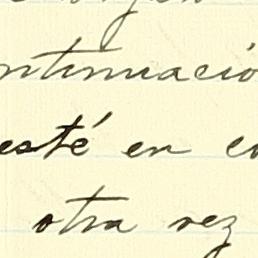 ontinuació
esté en co
otra vez